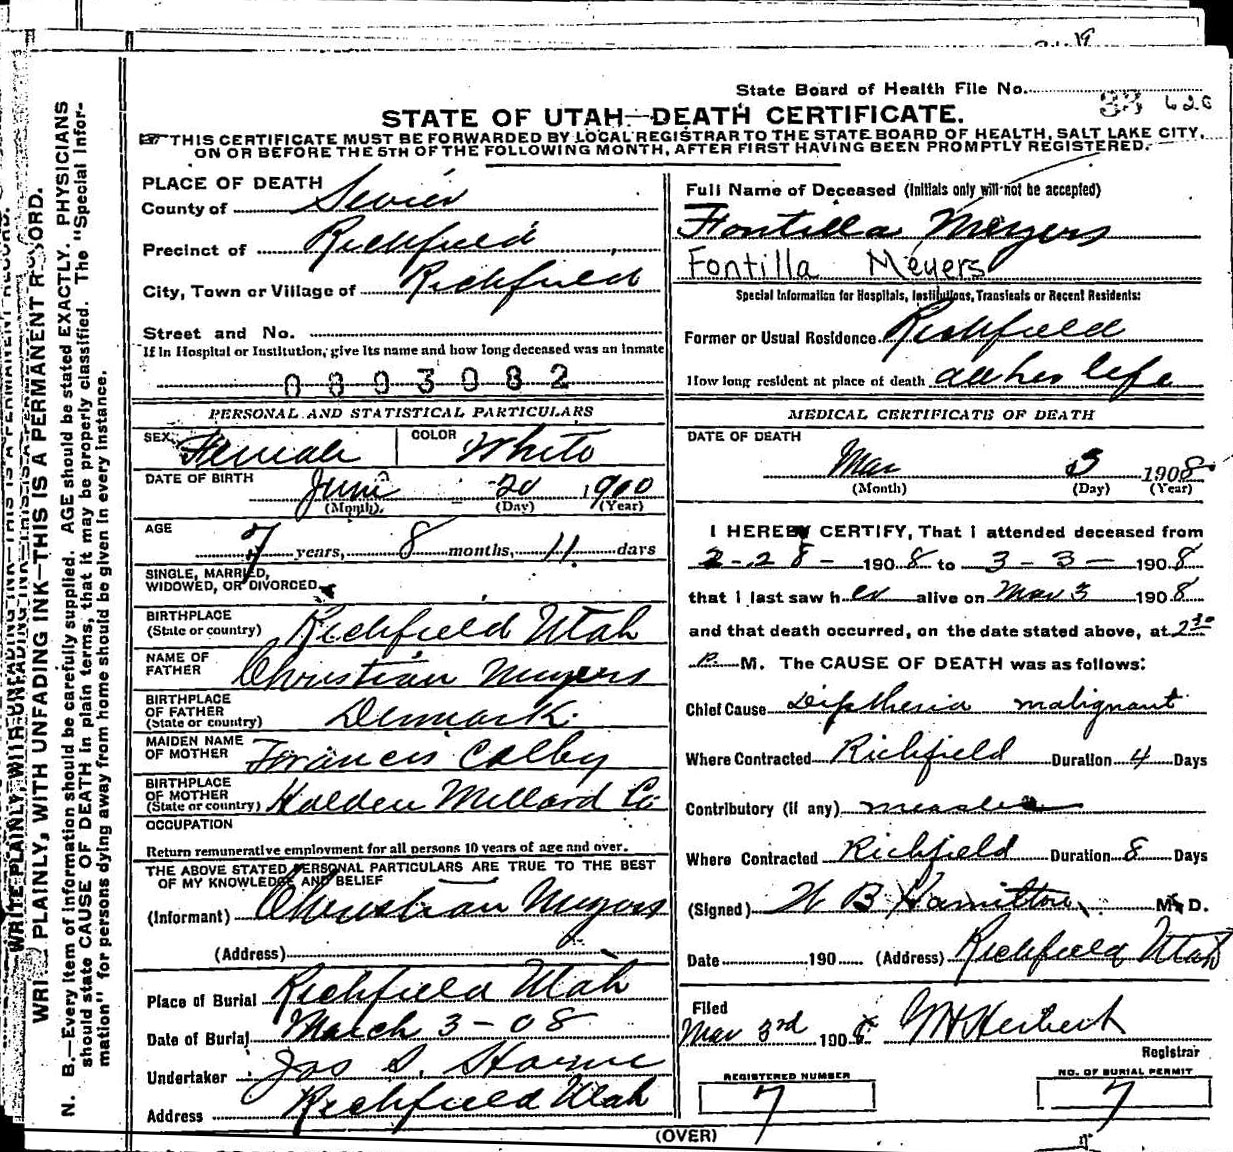 State Board of Health File No. 33 620
STATE OF UTAH—DEATH CERTIFICATE.
THIS CERTIFICATE MUST BE FORWARDED BY LOCAL REGISTRAR TO THE STATE BOARD OF HEALTH, SALT LAKE CITY,
ON OR BEFORE THE 5TH OF THE FOLLOWING MONTH, AFTER FIRST HAVING BEEN PROMPTLY REGISTERED.
WRITE PLAINLY, WITH UNFADING INK—THIS IS A PERMANENT RECORD.
N. B.—Every item of information should be carefully supplied. AGE should be stated EXACTLY. PHYSICIANS
should state CAUSE OF DEATH in plain terms, that it may be properly classified. The "Special Infor-
mation" for persons dying away from home should be given in every instance.
PLACE OF DEATH
County of Sevier
Precinct of Richfield
City, Town or Village of Richfield
Street and No.
If in Hospital or Institution, give its name and how long deceased was an inmate
0803082
PERSONAL AND STATISTICAL PARTICULARS
SEX Female COLOR White
DATE OF BIRTH June 20 1900
(Month) (Day) (Year)
AGE 7 years, 8 months, 11 days
SINGLE, MARRIED,
WIDOWED, OR DIVORCED
BIRTHPLACE
(State or country) Richfield Utah
NAME OF
FATHER Christian Meyers
BIRTHPLACE
OF FATHER
(State or country) Denmark
MAIDEN NAME
OF MOTHER Francis Colby
BIRTHPLACE
OF MOTHER
(State or country) Holden Millard Co
OCCUPATION
Return remunerative employment for all persons 10 years of age and over.
THE ABOVE STATED PERSONAL PARTICULARS ARE TRUE TO THE BEST
OF MY KNOWLEDGE AND BELIEF
(Informant) Christian Meyers
(Address)
Place of Burial Richfield Utah
Date of Burial March 3-08
Undertaker Jas S. Horne
Address Richfield Utah
Full Name of Deceased (Initials only will not be accepted)
Fontilla Meyers
Fontilla Meyers
Special Information for Hospitals, Institutions, Transients or Recent Residents:
Former or Usual Residence Richfield
How long resident at place of death all her life
MEDICAL CERTIFICATE OF DEATH
DATE OF DEATH
Mar 3 1908
(Month) (Day) (Year)
I HEREBY CERTIFY, That I attended deceased from
2-28- 1908 to 3-3- 1908
that I last saw her alive on Mar 3 1908
and that death occurred, on the date stated above, at 2 30
P M. The CAUSE OF DEATH was as follows:
Chief Cause Diptheria malignant
Where Contracted Richfield Duration 4 Days
Contributory (if any) measles
Where Contracted Richfield Duration 8 Days
(Signed) W B Hamilton M. D.
Date 190 (Address) Richfield Utah
Filed
Mar 3rd 1908 WH Herbert
Registrar
REGISTERED NUMBER
7
NO. OF BURIAL PERMIT
7
(OVER)